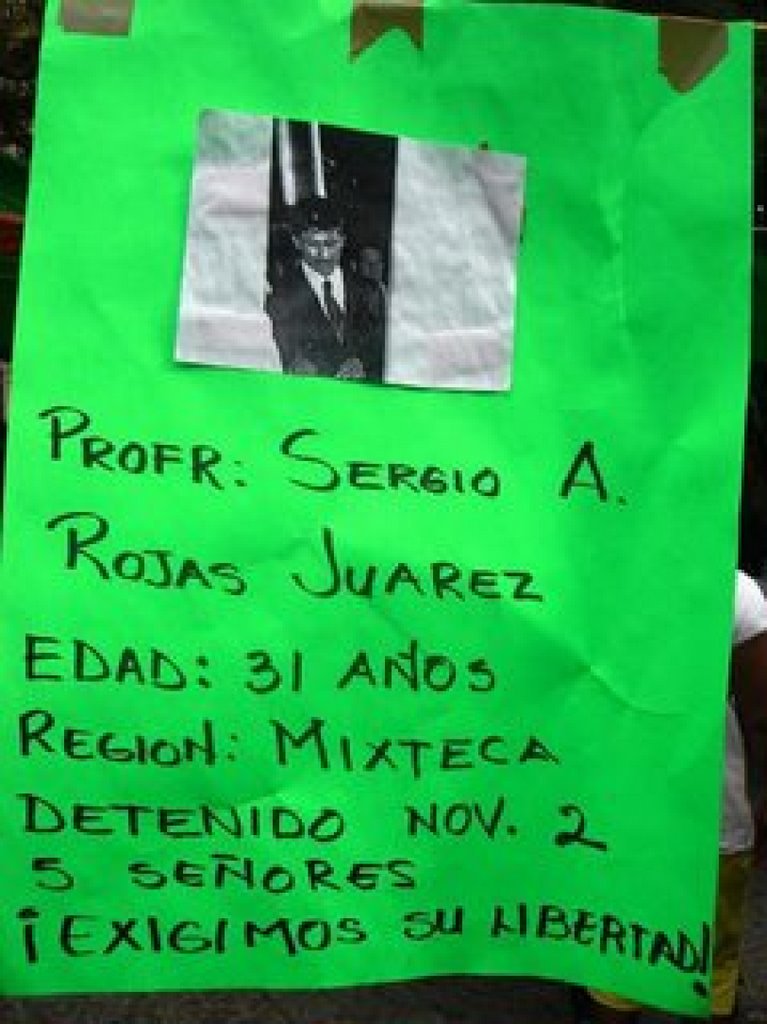 PROFR: SERGIO A.
ROJAS JUAREZ
EDAD: 31 AÑOS
REGION: MIXTECA
DETENIDO NOV. 2
5 SEÑORES
¡EXIGIMOS SU LIBERTAD!